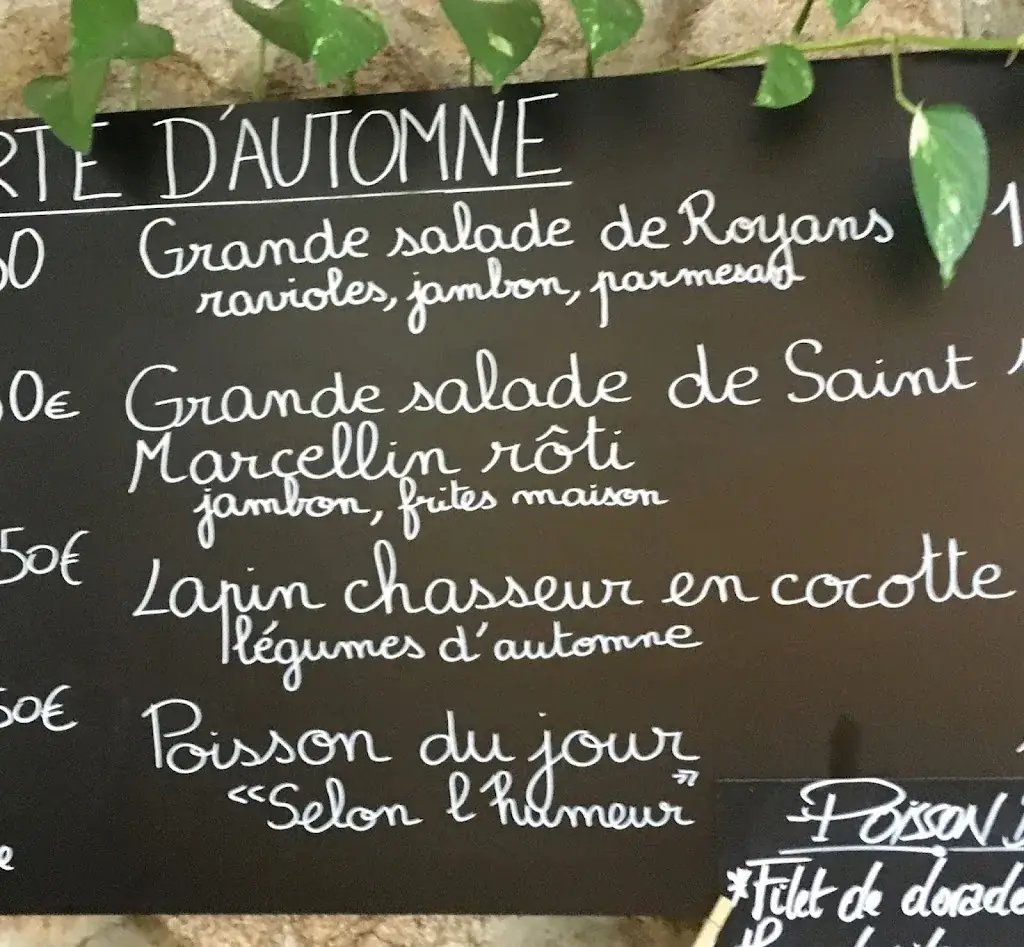 D'AUTOMNE
Grande salade de Royans
ravioles, jambon, parmesan
0€ Grande salade de Saint
Marcellin rôti
jambon, frites maison
50€ Lapin chasseur en cocotte
légumes d'automne
50€ Poisson du jour
«Selon l'humeur"
POISSON
*Filet de dorade